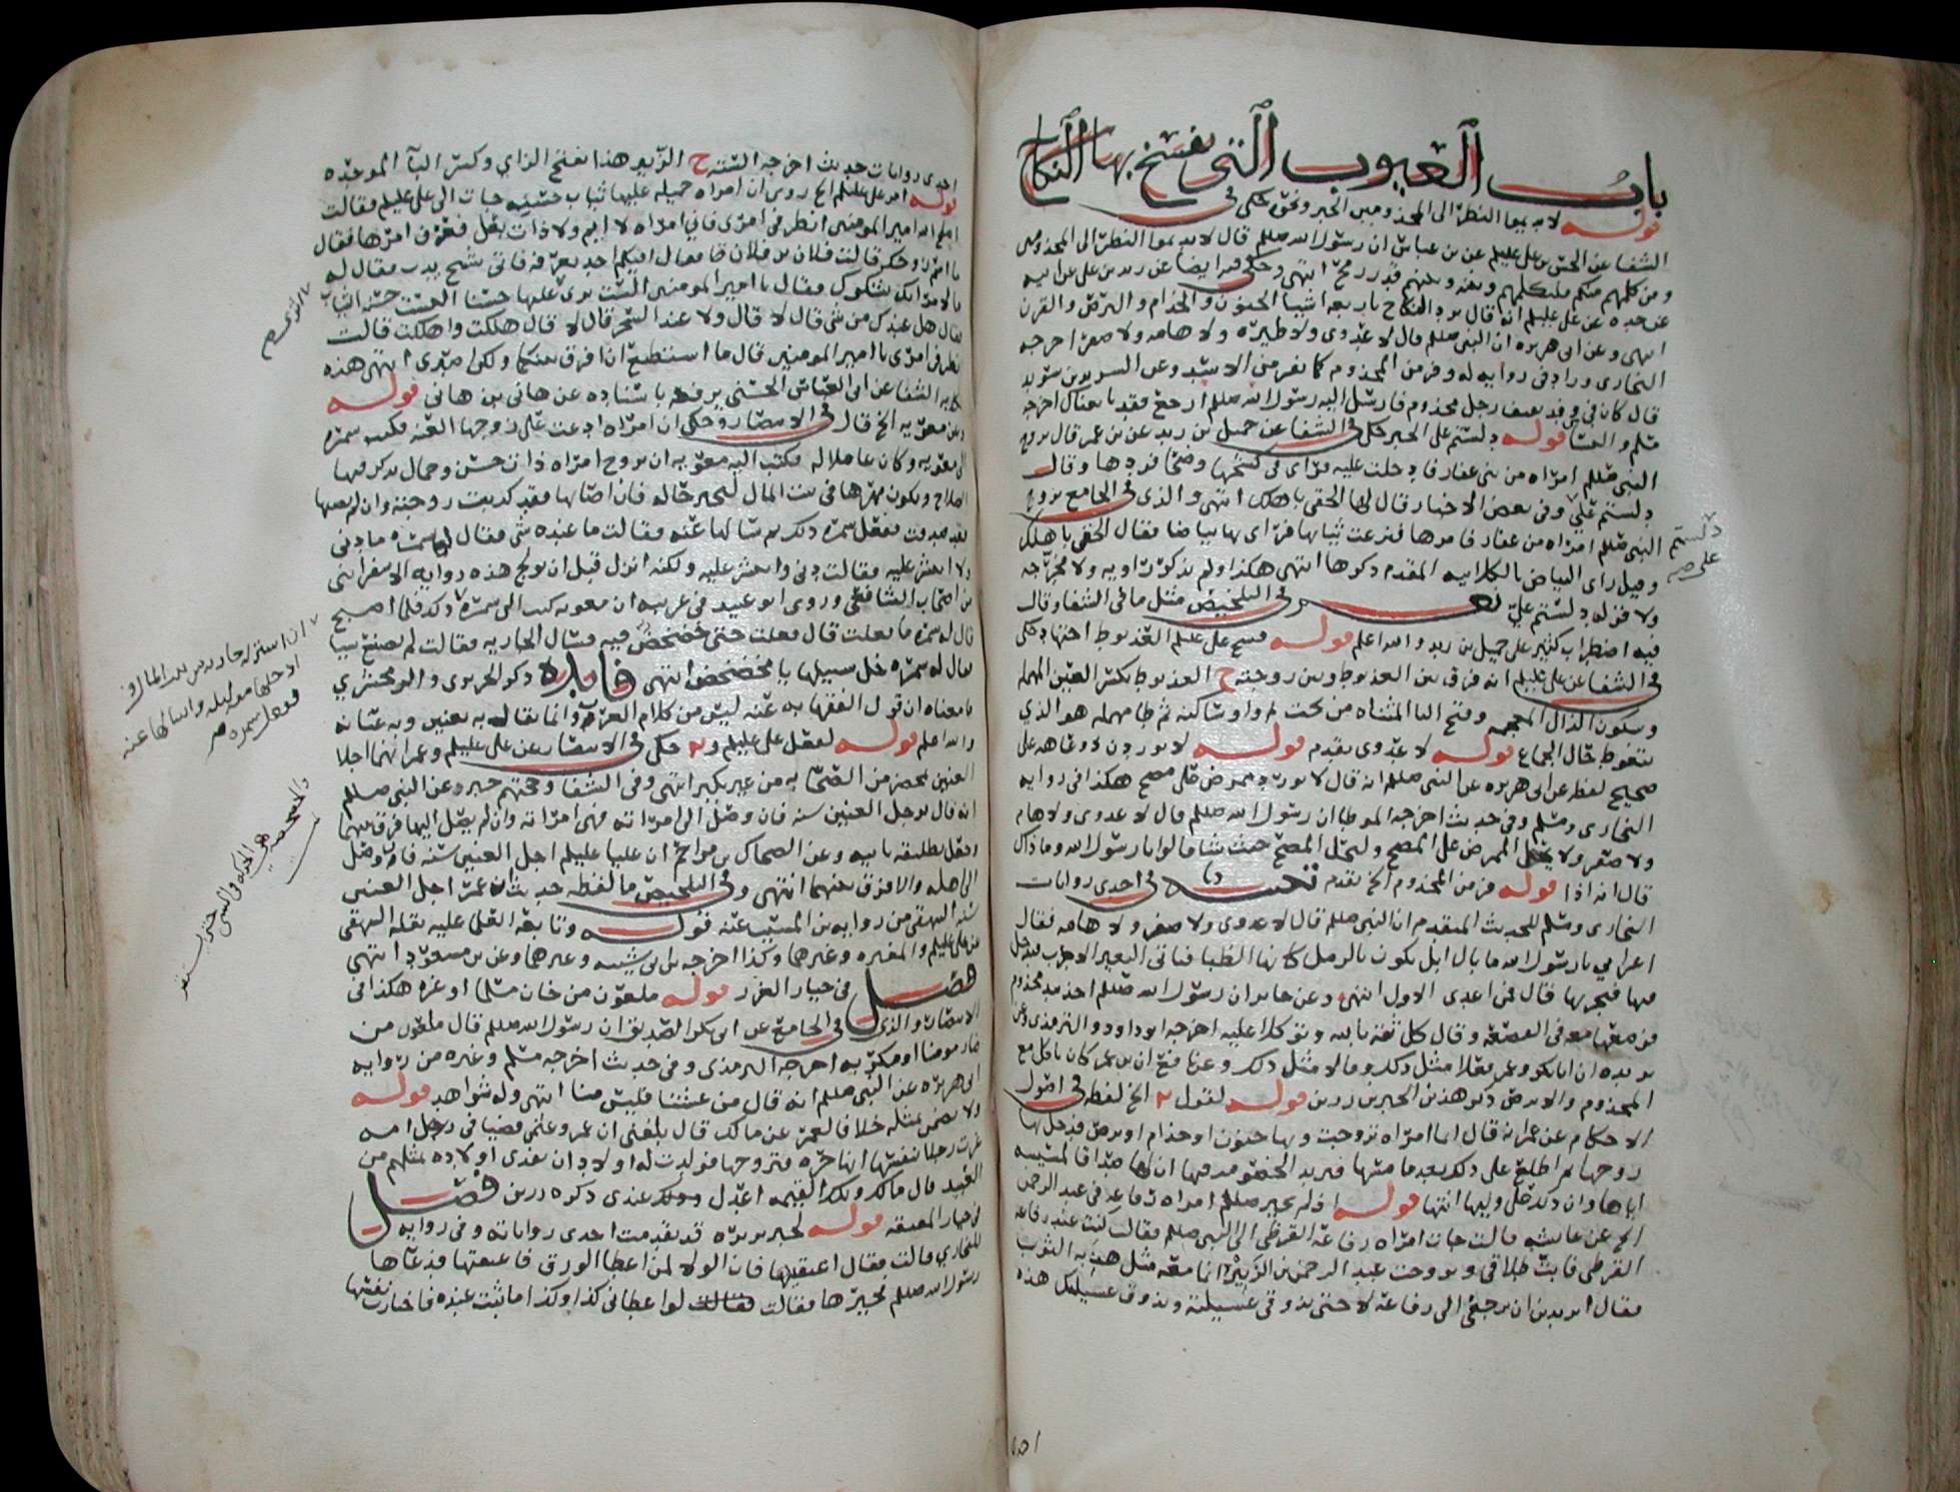 باب العيوب التي يفسخ بها النكاح
قوله لا تديموا النظر الى المجذومين الخبر ونحوه حكى في
الشفا عن الحسن بن علي عليلم عن بن عباس ان رسول الله صللم قال لا تديموا النظر الى المجذومين
ومن كلمهم منكم فليكلمهم وبينه وبينهم قدر رمح انتهى وحكى فيه ايضا عن زيد بن علي عن ابيه
عن جده عن علي عليلم انه قال يرد النكاح باربعة اشيا الجنون والجذام والبرص والقرن
انتهى وعن ابي هريره ان النبي صللم قال لا عدوى ولا طيره ولا هامه ولا صفر اخرجه
البخاري وزاد في روايه له وفر من المجذوم كما تفر من الاسد وعن الشريد بن سويد
قال كان في وفد ثقيف رجل مجذوم فارسل اليه رسول الله صللم ارجع فقد بايعناك اخرجه
مسلم والنسائي قوله دلستم علي الخبر حكى في الشفا عن جميل بن زيد عن بن عمر قال تزوج
النبي صللم امراه من بني غفار فادخلت عليه فراى في كشحها وضحا فردها وقال
دلستم علي وفي بعض الاخبار قال لها الحقي باهلك انتهى والذي في الجامع تزوج
النبي صللم امراه من غفار فامرها فنزعت ثيابها فراى بها بياضا فقال الحقي باهلك
وقيل راى البياض بالكلابيه المقدم ذكرها انتهى هكذا ولم يذكر راويه ولا مخرجه
ولا قوله دلستم علي نعم وفي التلخيص مثل ما في الشفا وقال
فيه اضطراب كثير على جميل بن زيد والله اعلم قوله فسخ علي عليلم العذيوط اجتهاد حكى
في الشفا عن علي عليلم انه فرق بين العذيوط وبين زوجته ح العذيوط بكسر العين المهمله
وسكون الذال المعجمه وفتح اليا المثناه من تحت ثم واو ساكنه ثم طا مهمله هو الذي
يتغوط حال الجماع قوله لا عدوى تقدم قوله لا يوردن ذو عاهه على
صحيح لفظه عن ابي هريره عن النبي صللم انه قال لا يورد ممرض على مصح هكذا في روايه
البخاري ومسلم وفي حديث اخرجه الموطا ان رسول الله صللم قال لا عدوى ولا هام
ولا صفر ولا يحل الممرض على المصح وليحل المصح حيث شا قالوا يا رسول الله وما ذاك
قال انه اذا قوله فر من المجذوم الخ تقدم في احدى روايات
البخاري ومسلم للحديث المتقدم ان النبي صللم قال لا عدوى ولا صفر ولا هامه فقال
اعرابي يا رسول الله ما بال ابل تكون بالرمل كانها الظبا فياتي البعير الاجرب فيدخل
فيها فيجربها قال فمن اعدى الاول انتهى وعن جابر ان رسول الله صللم اخذ بيد مجذوم
فوضعها معه في القصعه وقال كل ثقه بالله وتوكلا عليه اخرجه ابو داود والترمذي وعن
بريده ان ابا بكر وعمر فعلا مثل ذلك وقالا مثل ذلك وعن نافع ان بن عمر كان ياكل مع
المجذوم والابرص ذكر هذين الخبرين رزين قوله لقول الخ لفظه في اصول
الاحكام عن عمر انه قال ايما امراه تزوجت وبها جنون او جذام او برص فدخل بها
زوجها ثم اطلع على ذلك بعد ما مسها
اياها وان ذلك على وليها انتهى قوله اذ لم يخير صللم امراه رفاعه في عبد الرحمن
الخ عن عايشه قالت جات امراه رفاعه القرظي الى النبي صللم فقالت كنت عند رفاعه
القرظي فابت طلاقي وتزوجت عبد الرحمن بن الزبير وانما معه مثل هدبه الثوب
فقال اتريدين ان ترجعي الى رفاعه لا حتى تذوقي عسيلته ويذوق عسيلتك هذه
دلستم علي صح
احدى روايات حديث اخرجه السته ح الزبير هذا بفتح الزاي وكسر البا الموحده
قوله امر علي عليلم الخ روي ان امراه جميله عليها ثياب حسنه جات الى علي عليلم فقالت
اصلح الله امير المومنين انظر في امري فاني امراه لا ايم ولا ذات بعل فعرف امرها فقال
ما امر زوجك قالت فلان بن فلان قال افيكم احد يعرفه فاتي شيخ يدب فقال له
ما لامراتك تشكوك فقال يا امير المومنين الست ترى عليها حسنا الست حسنه الثياب
فقال هل عندك من شي قال لا قال ولا عند السحر قال لا قال هلكت واهلكت قالت
انظر في امري يا امير المومنين قال ما استطيع ان افرق بينكما ولكن اصبري انتهى هذه
حكايه الشفا عن ابي العباس الحسني يرفعه باسناده عن هاني بن هاني قوله
وعن معويه الخ قال في الانتصار وحكي ان امراه ادعت على زوجها العنه فكتب سمره
الى معويه وكان عاملا له فكتب اليه معويه ان يزوج امراه ذات حسن وجمال يذكر فيها
الصلاح ويكون مهرها في بيت المال ليختبر حاله فان اصابها فقد كذبت زوجته وان لم يصبها
فقد صدقت ففعل سمره ذلك ثم سالها عنه فقالت ما عنده شي فقال لها سمره ما دنى
ولا انتشر عليه فقالت دنى وانتشر عليه ولكنه انزل قبل ان يولج هذه روايه الاسفرايني
من اصحاب الشافعي وروى ابو عبيد في غريبه ان معويه كتب الى سمره ذلك فلما اصبح
قال له سمره ما فعلت قال فعلت حتى خضخض فيه فسال الجاريه فقالت لم يصنع شيا
فقال له سمره خل سبيلها يا مخضخض انتهى فايده ذكر الحريري والزمخشري
ما معناه ان قول الفقها به عنه ليس من كلام العرب وانما يقال به تعنين وبه عنانه
والله اعلم قوله لفعل علي عليلم وعمر حكى في الانتصار عن علي عليلم وعمر انهما اجلا
العنين بمحضر من الصحابه من غير نكير انتهى وفي الشفا وحجتهم خبره عن النبي صللم
انه قال يوجل العنين سنه فان وصل الى امراته فهي امراته وان لم يصل اليها فرق بينهما
وجعل تطليقه باينه وعن الضحاك بن مزاحم ان عليا عليلم اجل العنين سنه فان وصل
الى اهله والا فرق بينهما انتهى وفي التلخيص ما لفظه حديث ان عمر اجل العنين
سنه البيهقي من روايه بن المسيب عنه قوله وتابعه العلما عليه نقله البيهقي
عن علي عليلم والمغيره وغيرهما وكذا اخرجه بن ابي شيبه وغيرهما وعن بن مسعود انتهى
فصل في خيار الغرر قوله ملعون من خان مسلما او غره هكذا في
الانتصار والذي في الجامع عن ابي بكر الصديق ان رسول الله صللم قال ملعون من
ضار مومنا او مكر به اخرجه الترمذي وفي حديث اخرجه مسلم وغيره من روايه
ابي هريره عن النبي صللم انه قال من غشنا فليس منا انتهى وله شواهد قوله
ولا يضمن بمثله خلافا لعمر عن مالك قال بلغني ان عمر وعثمن قضيا في رجل امه
غرت رجلا بنفسها انها حره فتزوجها فولدت له اولاد ان يفدى اولاده بمثلهم من
العبيد قال مالك وتلك القيمه اعدل وذلك عندي ذكره رزين فصل
في خيار المعتقه قوله لخبر بريره قد تقدمت احدى رواياته وفي روايه
للبخاري قالت فقال اعتقيها فان الولا لمن اعطى الورق فاعتقتها فدعاها
رسول الله صللم فخيرها فقالت لو اعطاني كذا وكذا ما ثبت عنده فاختارت نفسها